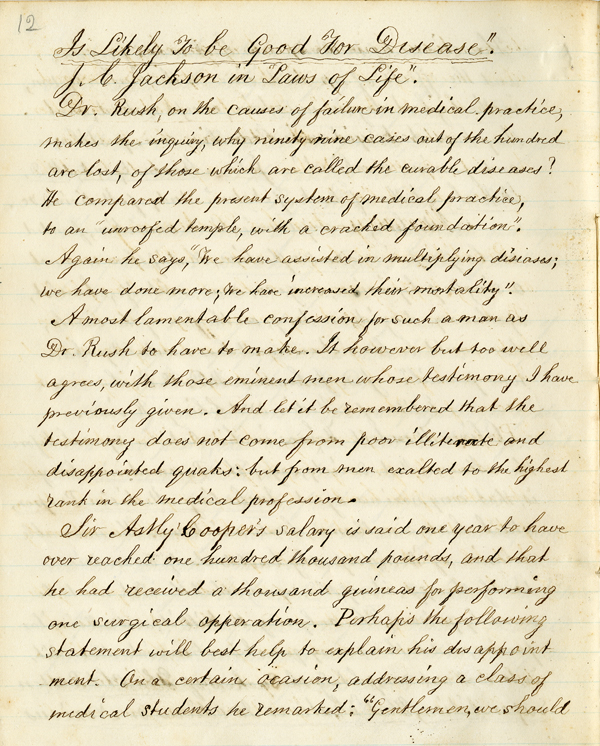 12
Is Likely To be Good For Disease".
J. C. Jackson in "Laws of Life".
Dr. Rush, on the causes of failure in medical practice,
makes the inquiry, why ninety nine cases out of the hundred
are lost, of those which are called the curable diseases?
He compared the present system of medical practice,
to an "unroofed temple, with a cracked foundation".
Again he says, "We have assisted in multiplying disiases;
we have done more; We have increased their mortality".
A most lamentable confession for such a man as
Dr. Rush to have to make. It however but too well
agrees, with those eminent men whose testimony I have
previously given. And let it be remembered that the
testimony does not come from poor illiterate and
disappointed quaks: but from men exalted to the highest
rank in the medical profession.
Sir Astly Cooper's salary is said one year to have
over reached one hundred thousand pounds, and that
he had received a thousand guineas for performing
one surgical opperation. Perhaps the following
statement will best help to explain his disappoint
ment. On a certain ocasion, addressing a class of
medical students he remarked: "Gentlemen, we should